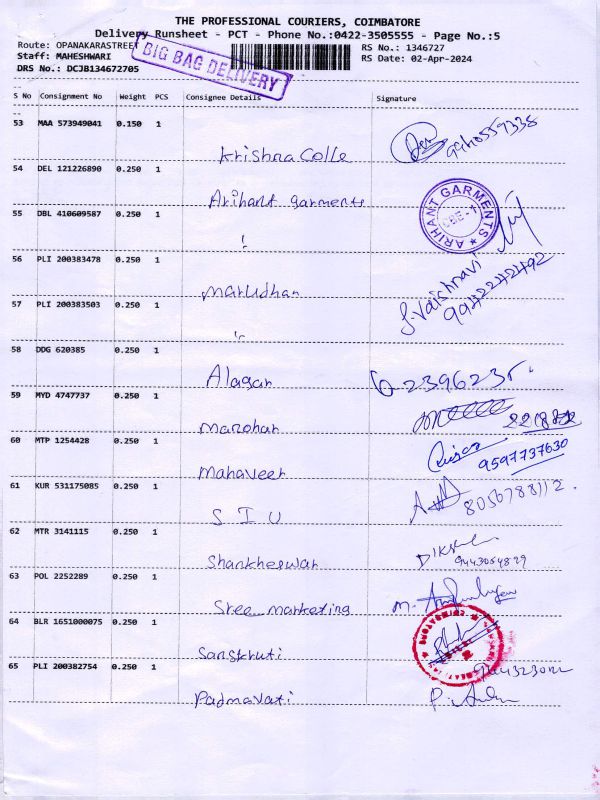 THE PROFESSIONAL COURIERS, COIMBATORE
Delivery Runsheet - PCT - Phone No.:0422-3505555 - Page No.:5
Route: OPANAKARASTREET
RS No.: 1346727
Staff: MAHESHWARI
RS Date: 02-Apr-2024
DRS No.: DCJB134672705
BIG BAG DELIVERY
S No Consignment No Weight PCS Consignee Details Signature
53 MAA 573949041 0.150 1
Krishna Colle
54 DEL 121226890 0.250 1
Arihant garments
ARIHANT GARMENTS
CBE-1
55 DBL 410609587 0.250 1
"
56 PLI 200383478 0.250 1
Marudhan
J. Vaishnavi
9942242492
57 PLI 200383503 0.250 1
"
58 DDG 620385 0.250 1
Alagar 2396235
59 MYD 4747737 0.250 1
Manohar
60 MTP 1254428 0.250 1
Mahaveer 9597737630
61 KUR 531175085 0.250 1
S I U 8056788112
62 MTR 3141115 0.250 1
Shankheswar
63 POL 2252289 0.250 1
Sree marketing
64 BLR 1651000075 0.250 1
Sanskruti
65 PLI 200382754 0.250 1
Padmavati